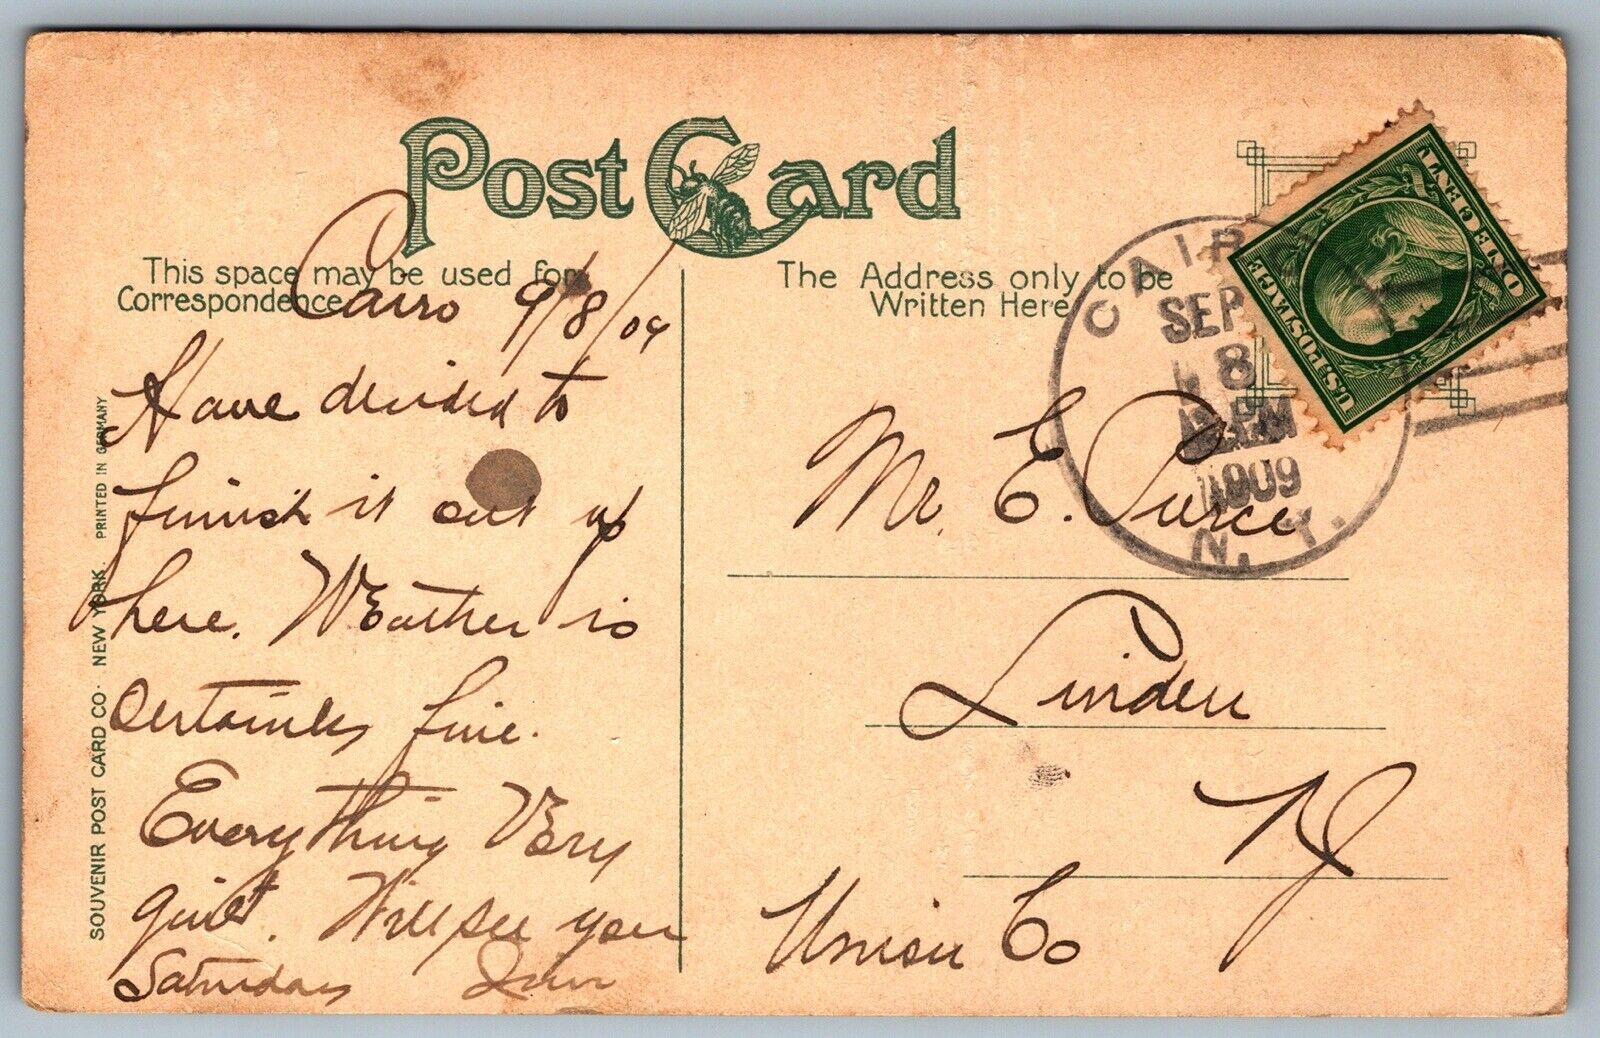 Post Card
This space may be used for
Correspondence
The Address only to be
Written Here
Cairo 9/8/09
Have decided to
finish it out up
here. Weather is
certainly fine.
Everything Very
quiet. Will see you
Saturday
Mr. E. Purce
Linden
N J
Union Co
CAIRO
SEP
8
PM
1909
N. Y.
ONE CENT
U.S. POSTAGE
SOUVENIR POST CARD CO. NEW YORK. PRINTED IN GERMANY